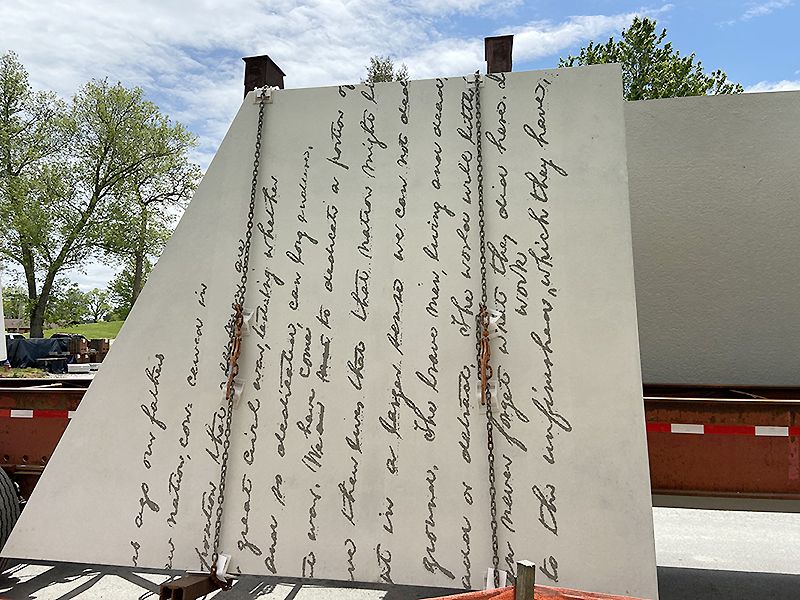 rs ago our father
w nation, con= ceived in
position that
great civil war, testing whether
and so dedicated, can long endure.
have come
war. We are met to dedicate a portion of
their lives that that nation might li
in a larger sense we can not ded
ground. The brave men, living and dead,
add or detract. The world will little
never forget what they did here.
work
to this unfinished, which they have,